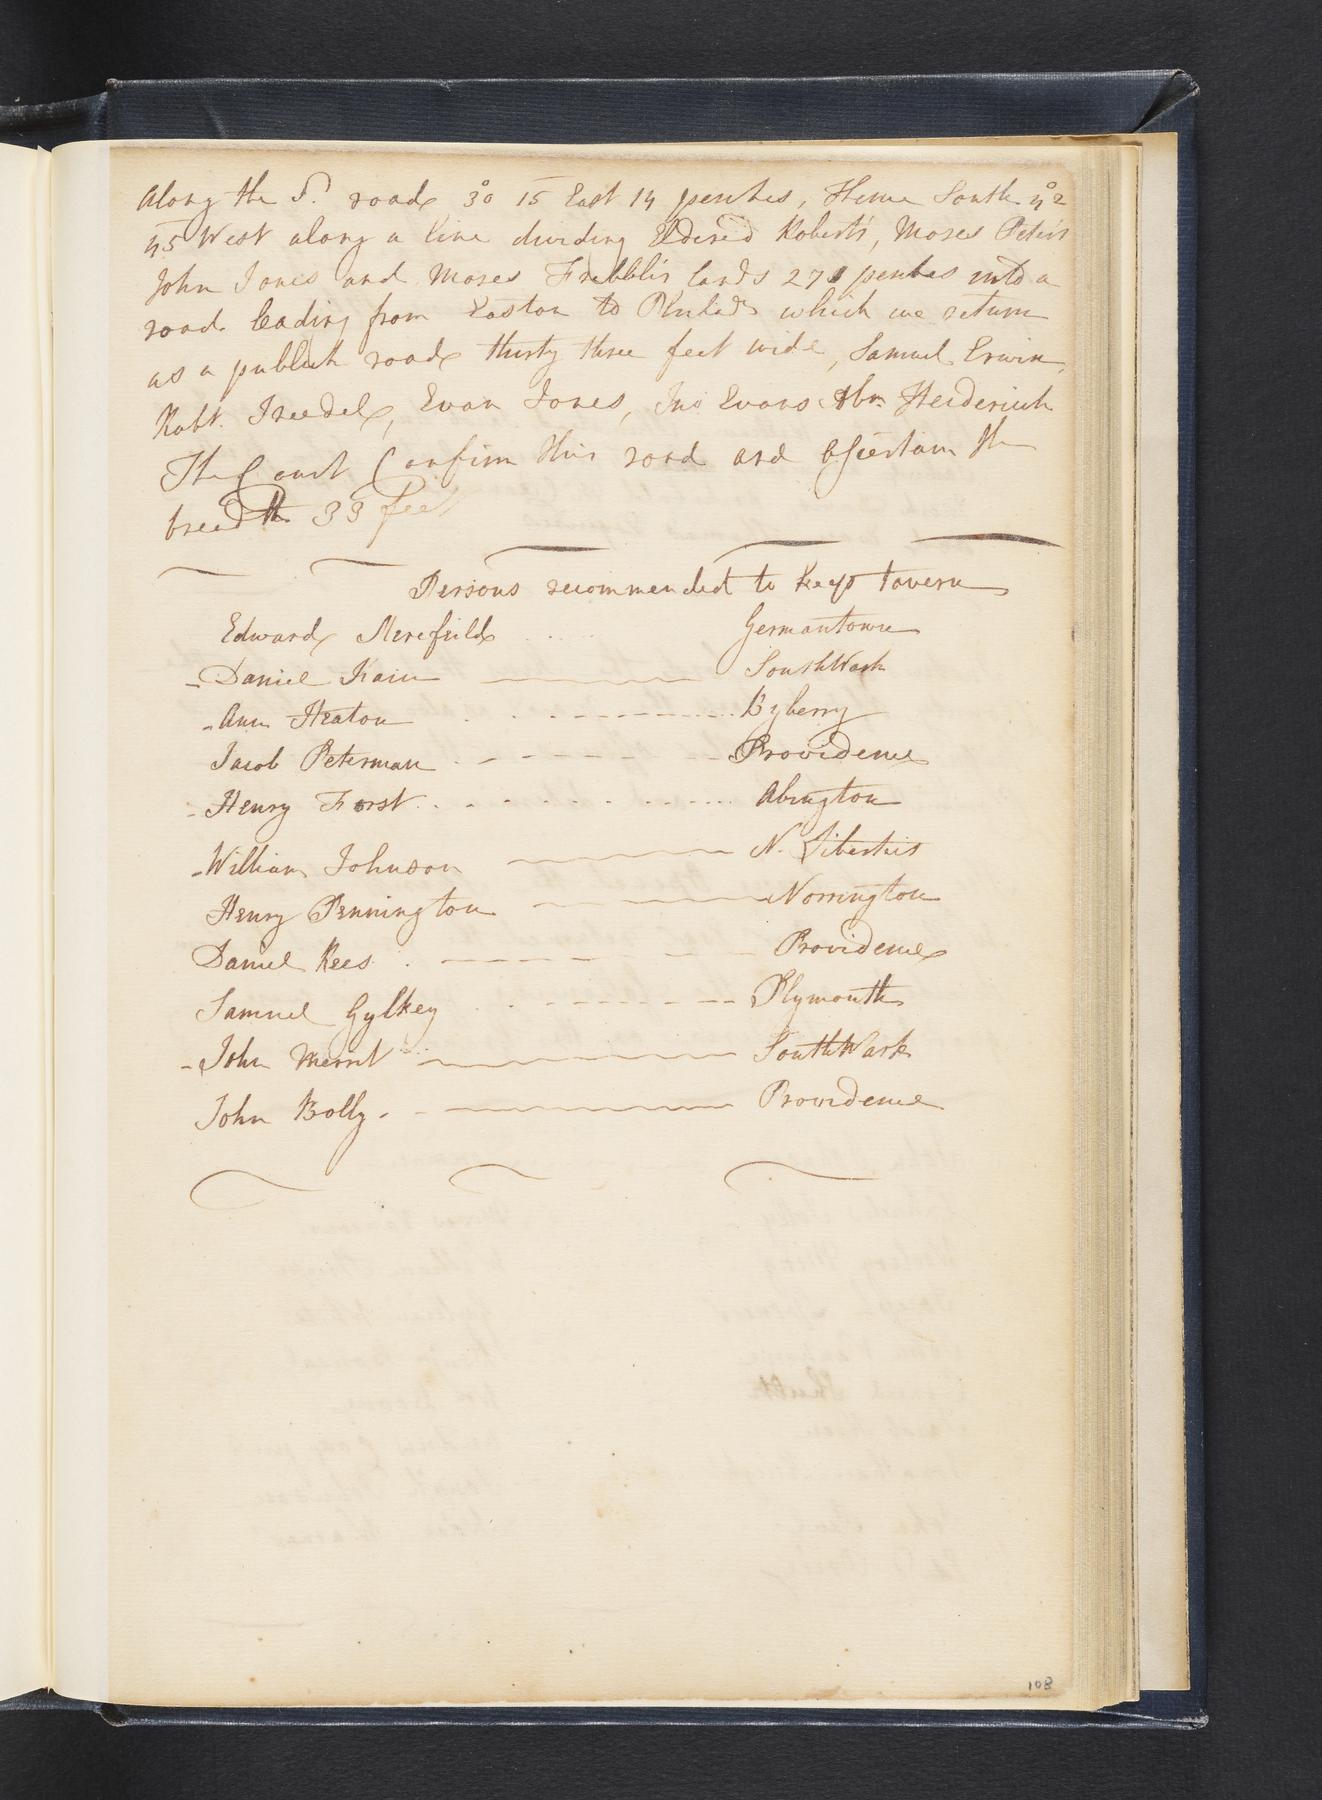 along the Sd. road 3° 15 East 14 perches, thence South 42°
45 West along a line dividing Eldered Roberts, Moses Peters
John Jones and Moses Frebbls lands 278 perches into a
road leading from Easton to Philada which we return
as a publick road thirty three feet wide, Samuel Erwin,
Robt. Iredel, Evan Jones, Jno Evans Abm. Heiderich
The Court Confirm this road and assertain the
breadth 33 feet
Persons recommended to keep tavern
Edward Merefield Germantown
Daniel Kain SouthWark
Ann Heaton Byberry
Jacob Peterman Providence
Henry Forst Abington
William Johnson N. Liberties
Henry Pennington Norrington
Daniel Rees Providence
Samuel Gylkey Plymouth
John Merrit SouthWark
John Bolly Providence
108